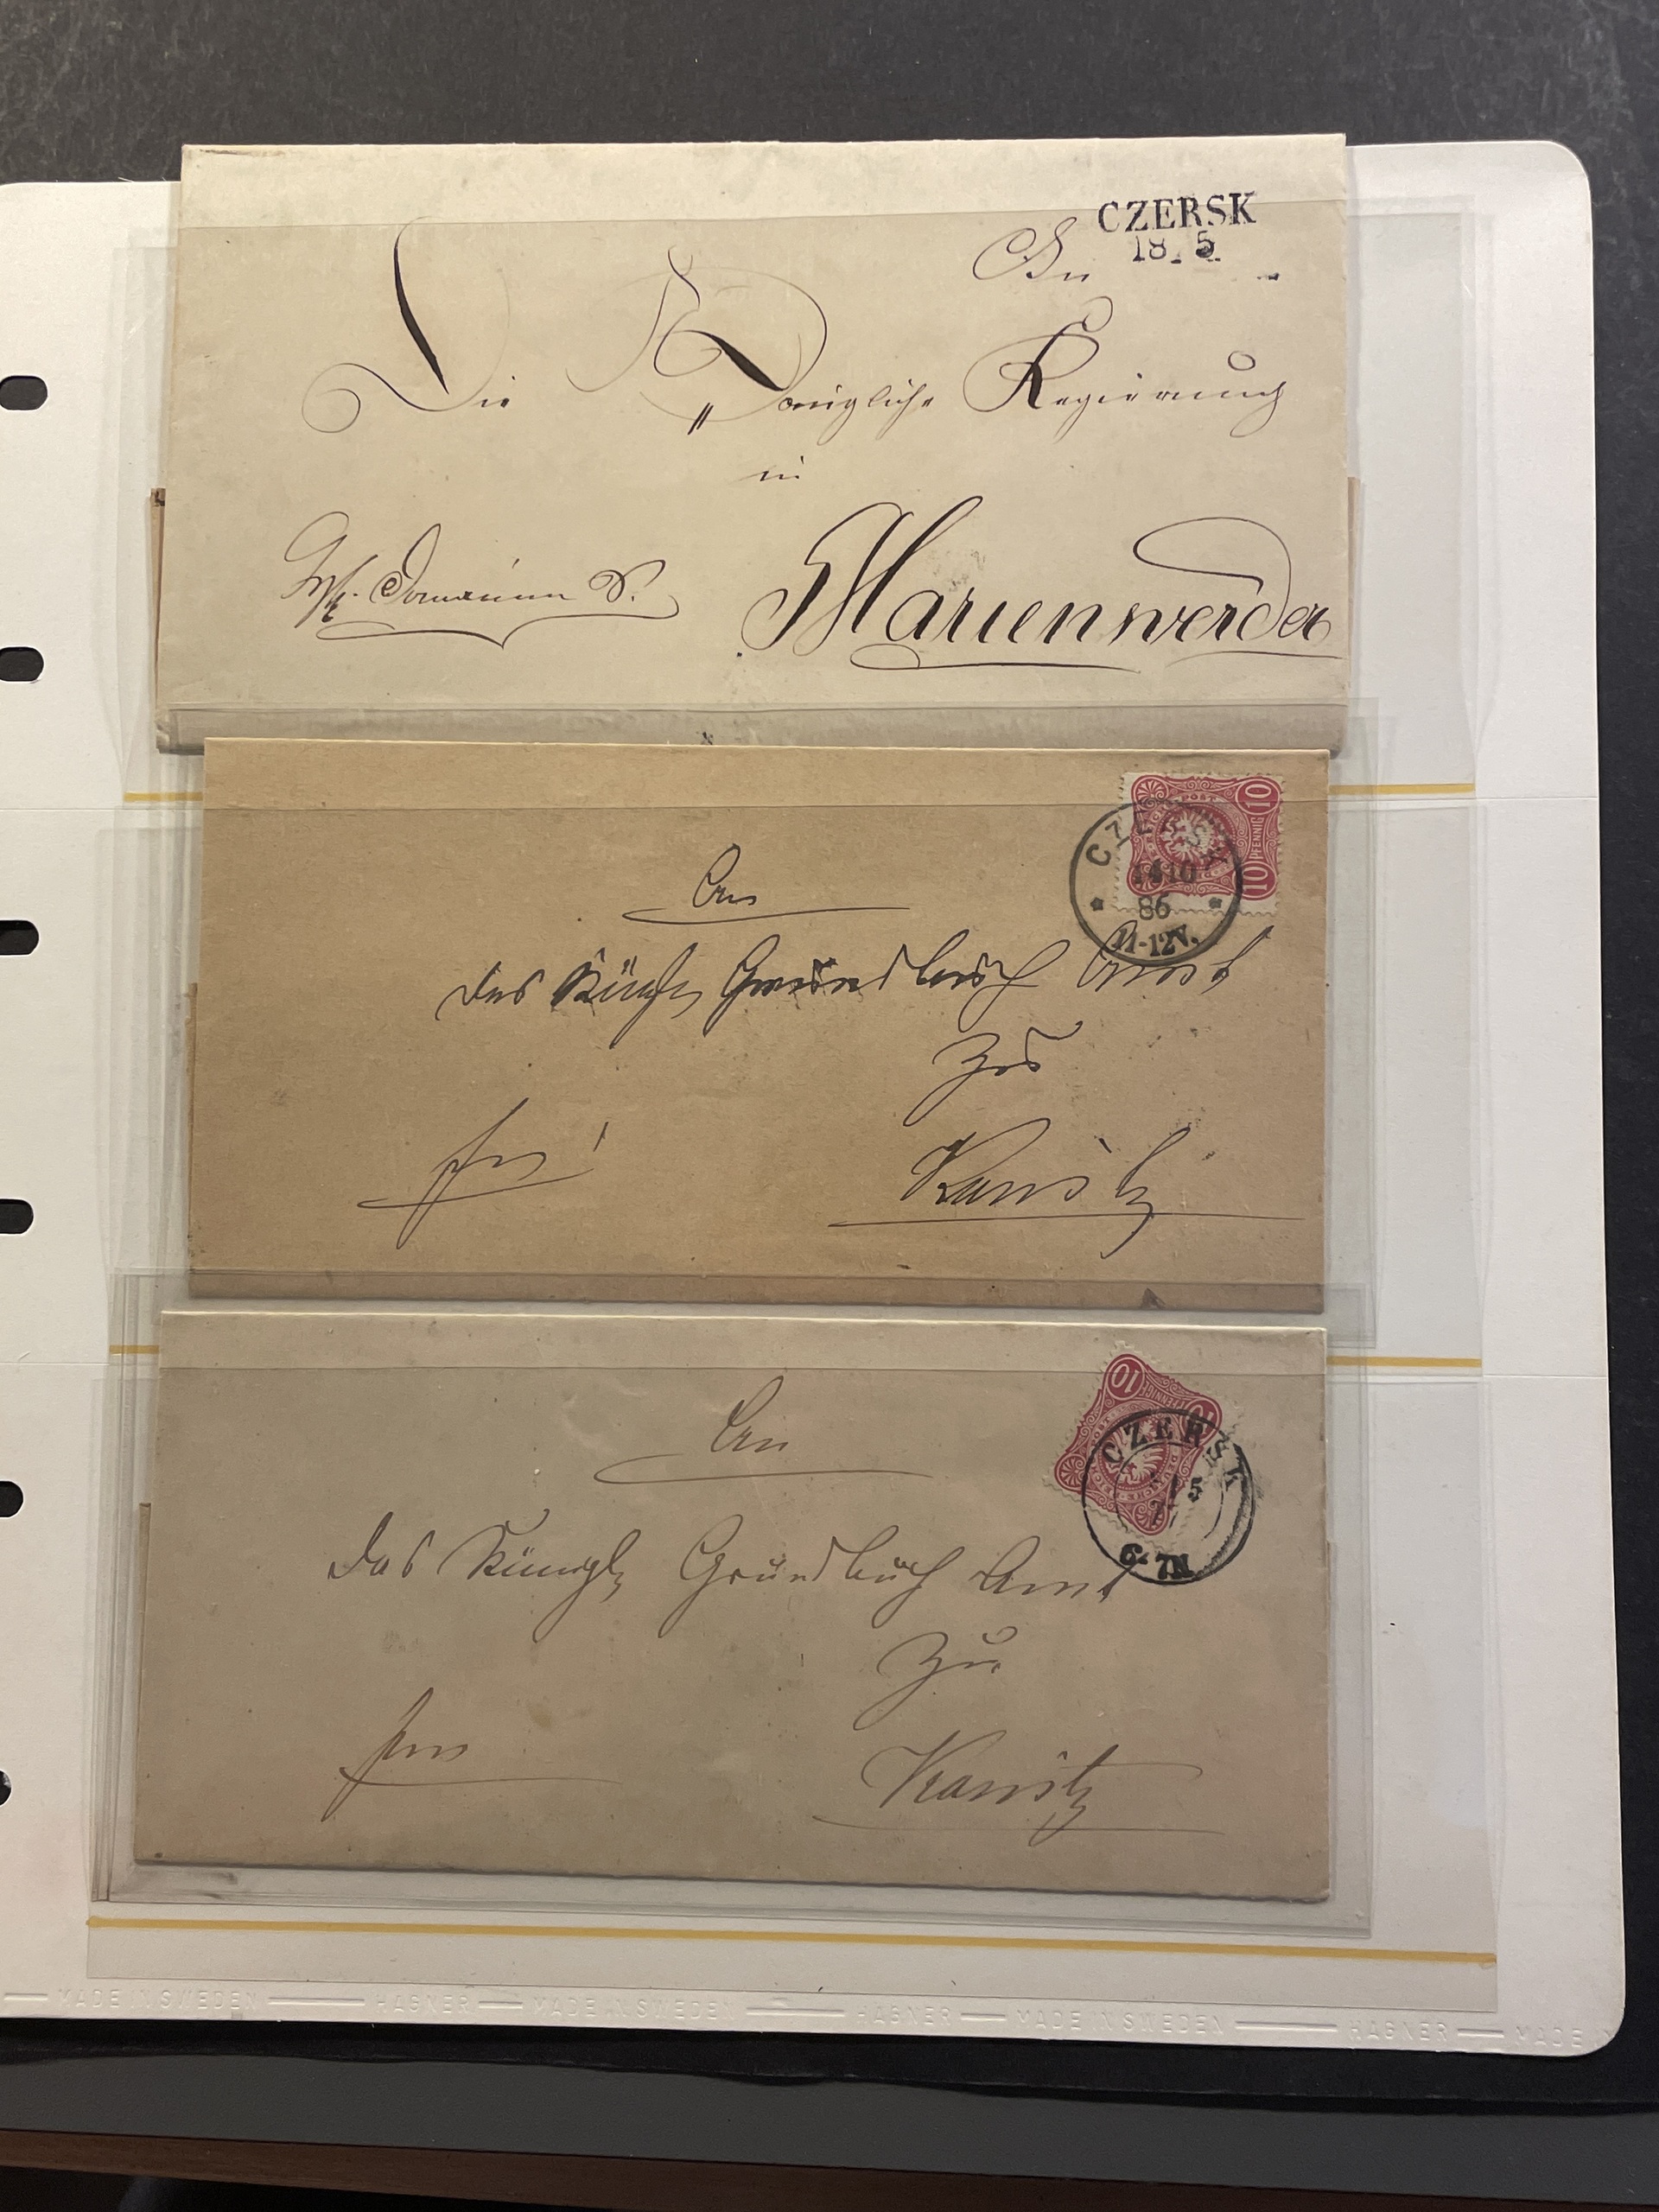 CZERSK
18. 5.
An
Die Königliche Regierung
in
Domainen S.
Marienwerder
10 PFENNIG 10
CZERSK
14 10
86
11-12V.
An
das Königl. Grundbuch Amt
zu
frei
Konitz
10 PFENNIG 10
CZERSK
5
6-7N
An
das Königl. Grundbuch Amt
zu
Konitz
MADE IN SWEDEN HAGNER MADE IN SWEDEN HAGNER MADE IN SWEDEN HAGNER MADE